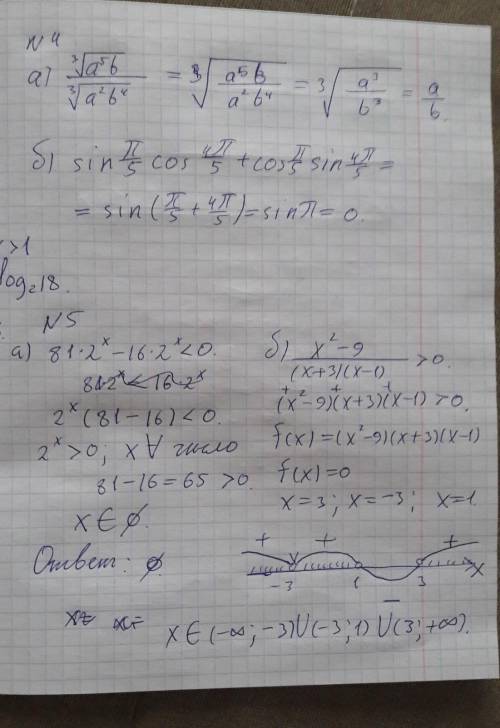 N4
а) ∛(a⁵b) / ∛(a²b⁴) = ∛(a⁵b / a²b⁴) = ∛(a³ / b³) = a/b
б) sin π/5 cos 4π/5 + cos π/5 sin 4π/5 =
= sin(π/5 + 4π/5) = sin π = 0.
>1
log₂18.
N5
а) 81·2ˣ − 16·2ˣ < 0.
81·2ˣ < 16·2ˣ
2ˣ(81−16) < 0.
2ˣ > 0; x ∀ число
81−16 = 65 > 0.
x ∈ ∅.
Ответ: ∅.
б) (x²−9) / ((x+3)(x−1)) > 0.
+ + +
(x²−9)(x+3)(x−1) > 0.
f(x) = (x²−9)(x+3)(x−1)
f(x) = 0
x = 3; x = −3; x = 1.
+ + +
−3 1 3 x
−
x ∈ (−∞; −3) ∪ (−3; 1) ∪ (3; +∞).